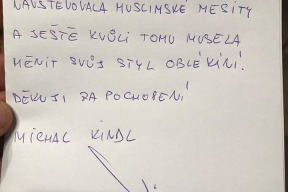 NAVŠTĚVOVALA MUSLIMSKÉ MEŠITY
A JEŠTĚ KVŮLI TOMU MUSELA
MĚNIT SVŮJ STYL OBLÉKÍNÍ.
DĚKUJI ZA POCHOPENÍ
MICHAL KINDL